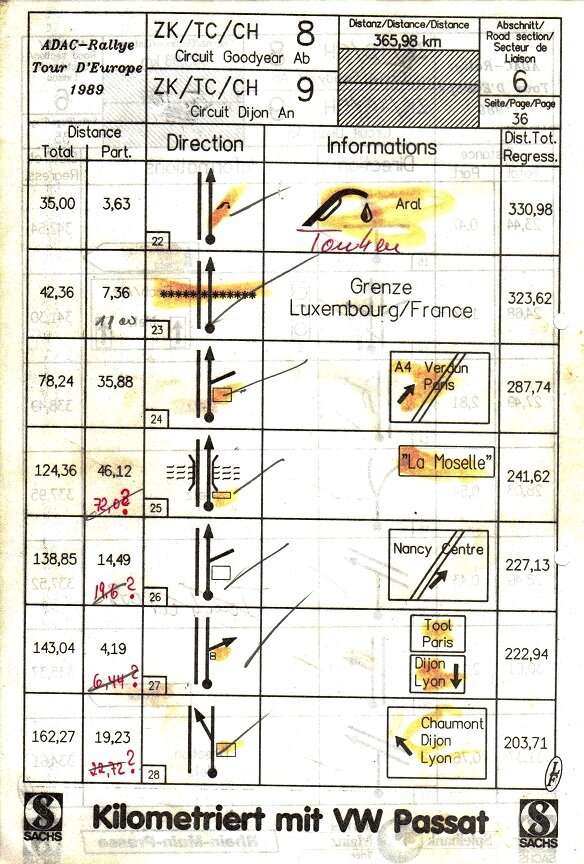 ADAC-Rallye
Tour D'Europe
1989
ZK/TC/CH 8
Circuit Goodyear Ab
ZK/TC/CH 9
Circuit Dijon An
Distanz/Distance/Distance
365,98 km
Abschnitt/
Road section/
Secteur de
Liaison
6
Seite/Page/Page
36
Distance
Total Part.
Direction
Informations
Dist.Tot.
Regress.
35,00 3,63
22
Aral
Tanken
330,98
42,36 7,36
23
Grenze
Luxembourg/France
323,62
78,24 35,88
24
A4 Verdun
Paris
287,74
124,36 46,12
72,08?
25
"La Moselle"
241,62
138,85 14,49
19,6?
26
Nancy Centre
227,13
143,04 4,19
6,44?
27
Tool
Paris
Dijon
Lyon
222,94
162,27 19,23
22,72?
28
Chaumont
Dijon
Lyon
203,71
S
SACHS
Kilometriert mit VW Passat
S
SACHS